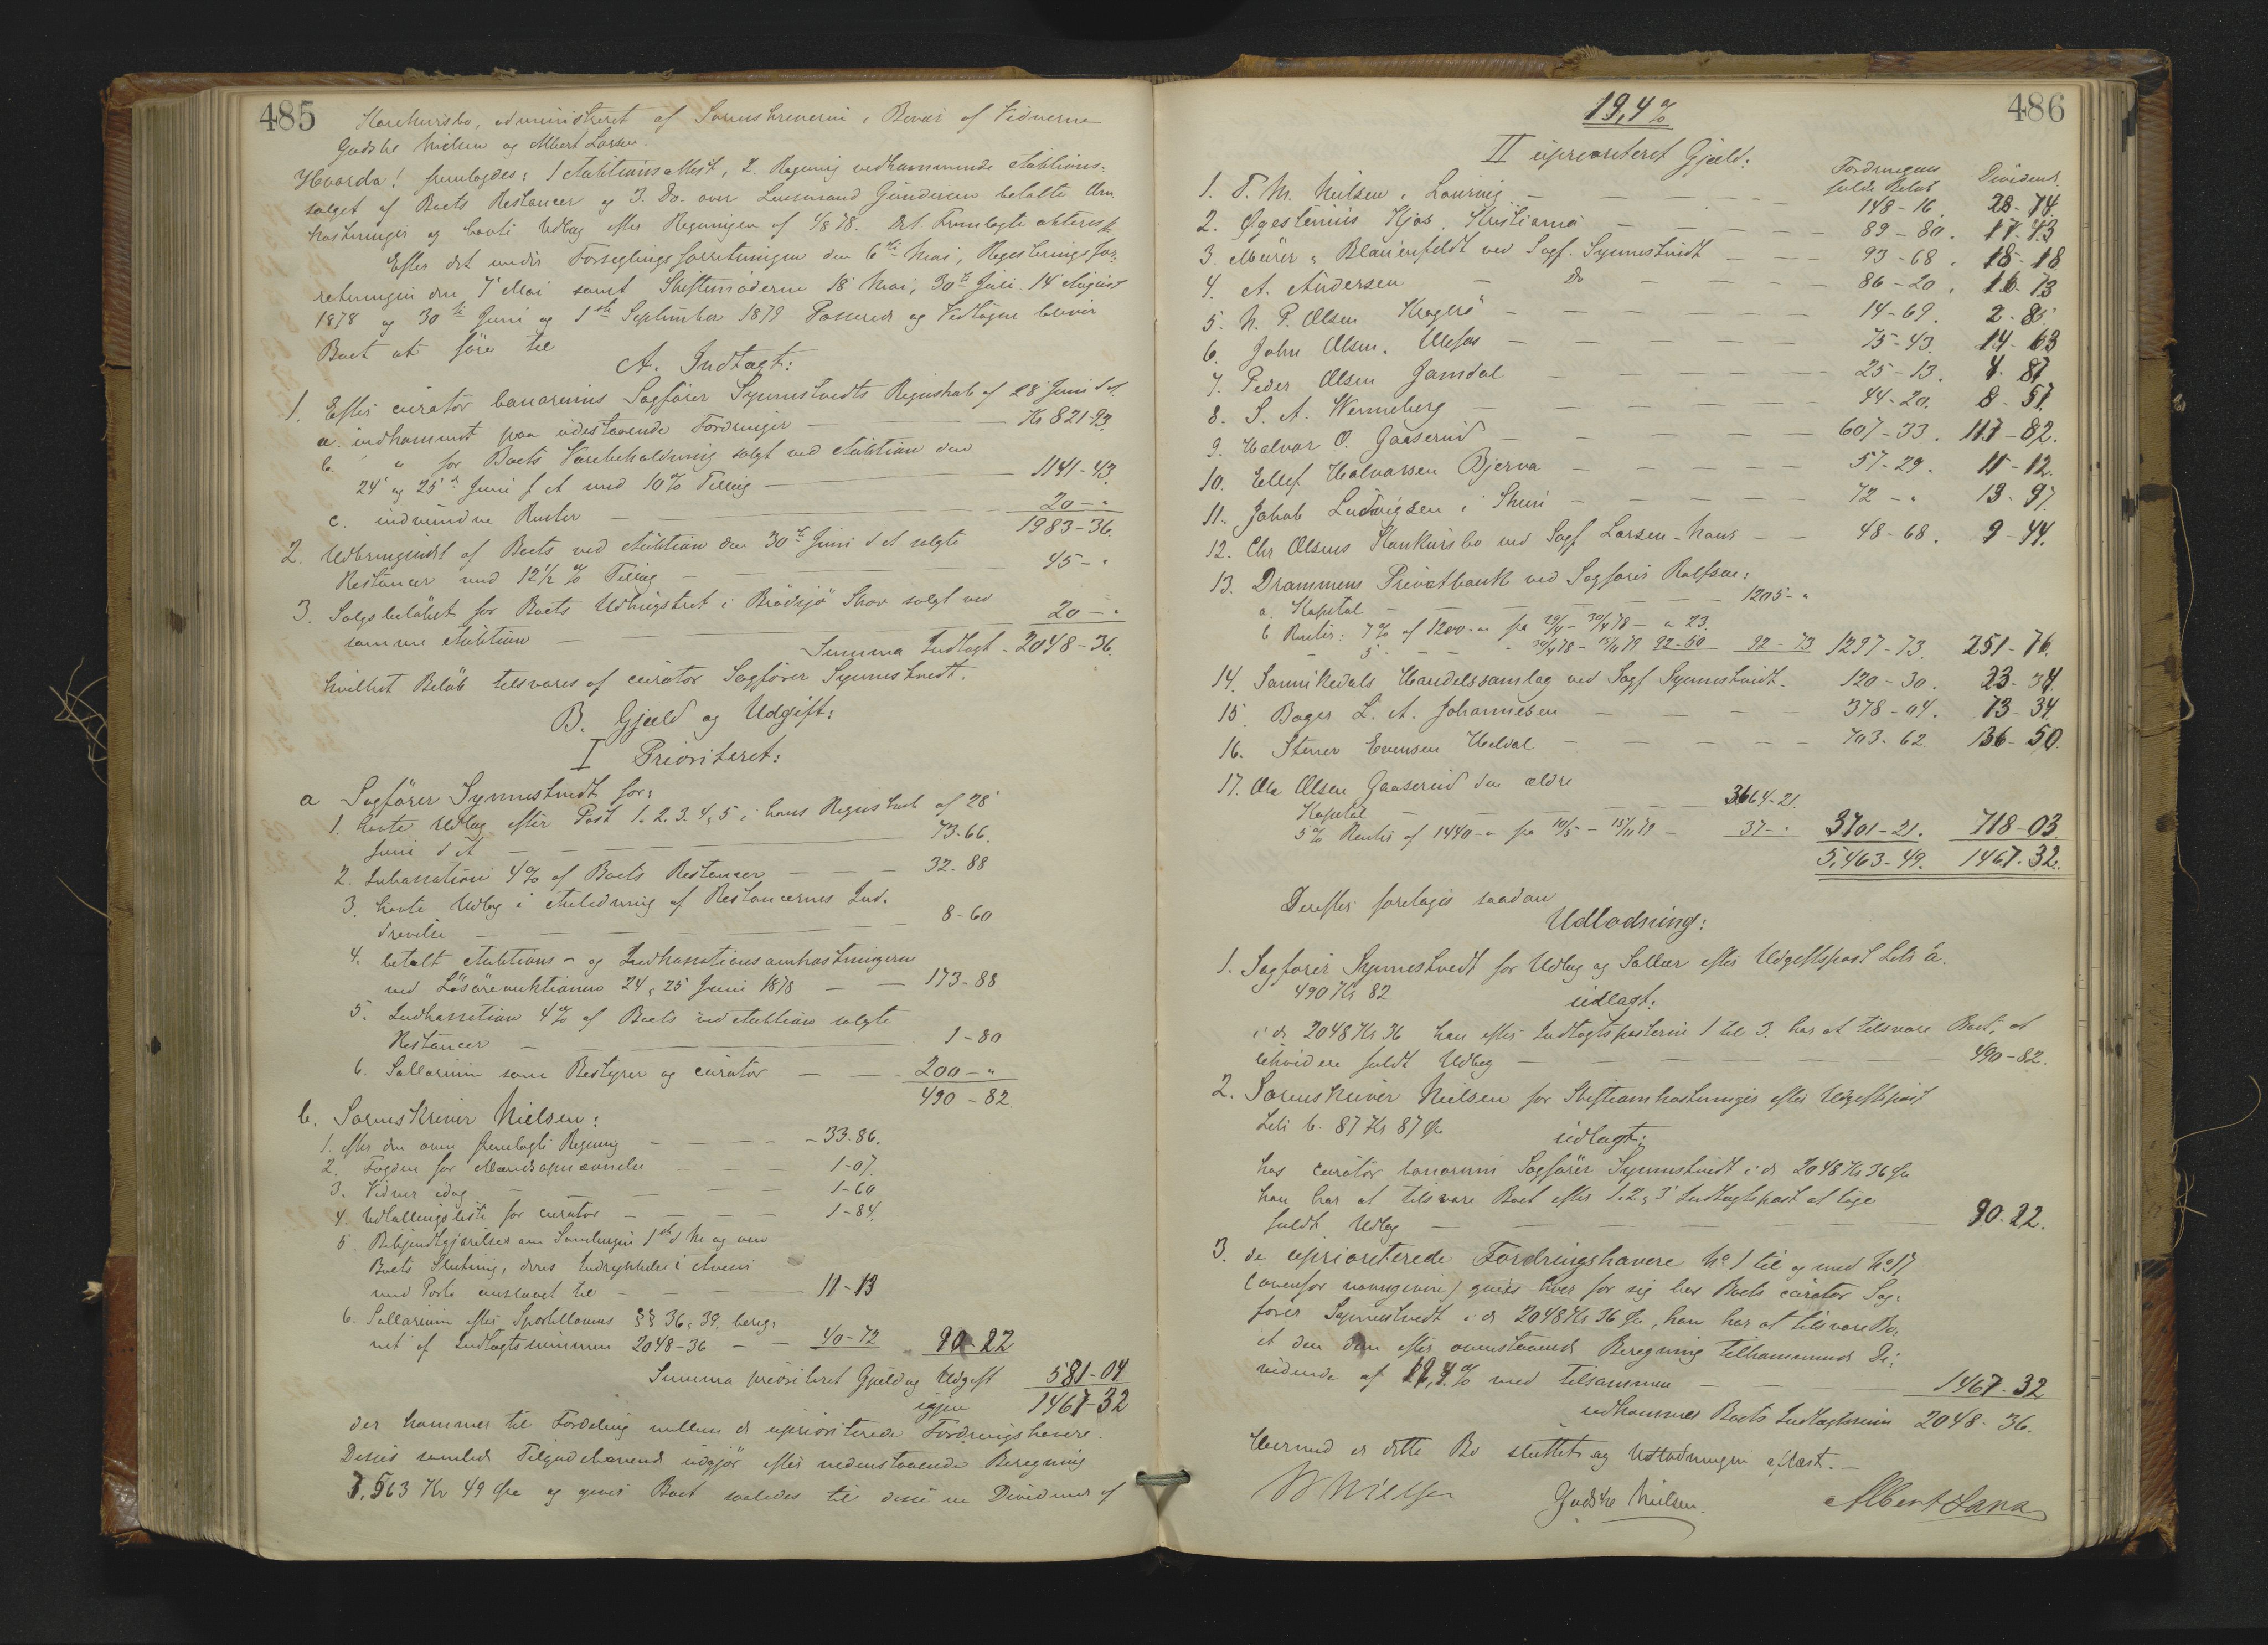 485
administreret af Sorenskriveren, Bevær af Vidnerne
Gudske Nielsen og Albert Larsen.
Hvorda! fremlagdes: 1 Auktions Akt, 2. Regning vedkommende Auktions-
salget af Boets Restancer og 3. Do. over Lensmand Gundersen betalte Om-
kostninger og havte Udlæg efter Regningen af 1/8 78. Det Fremlagte
Efter det under Forseglingsforretningen den 6te Mai, Registeringsfor-
retningen den 7de Mai samt Skiftemøderne 18 Mai, 30te Juli 14 August
1878 og 30te Juni og 1ste September 1879 Passerede og Vedtagne bliver
Boet at føre til
A. Indtægt:
1. Efter curator bonorums Sagfører Synnestvedts Regnskab af 28 Juni d A.
a. indkommet paa udestaaende Fordringer — Kr 821-93.
b. " for Boets Varebeholdning solgt ved Auktion den
24 og 25de Juni f A med 10% Tillæg — 1141-43.
c. indvundne Renter — 20-"
1983-36.
2. Udbringendet af Boets ved Auktion den 30te Juni d A solgte
Restancer med 12½ % Tillæg — 45-"
3. Salgsbeløbet for Boets Udhugstret i Skov solgt ved
samme Auktion — 20-"
Summa Indtægt - 2048-36.
hvilket Beløb tilsvares af curator Sagfører Synnestvedt.
B. Gjæld og Udgift:
I Prioriteret:
a Sagfører Synnestvedt for:
1. havte Udlæg efter Post 1. 2. 3. 4, 5 i hans Regnskab af 28
Juni d A — 73-66.
2. Inkassation 4% af Boets Restancer — 32-88
3. havte Udlæg i Anledning af Restancernes Ind-
drivelse — 8-60
4. betalt Auktions- og Indkassationsomkostningerne
ved Løsøreauktionen 24, 25 Juni 1878 — 173-88
5. Indkassation 4% af Boets ved Auktion solgte
Restancer — 1-80
6. Sallarium som Bestyrer og curator — 200-"
490-82
b. Sorenskriver Nielsen:
1. efter den oven fremlagte Regning — 33-86.
2. Fogden for — 1-07.
3. Vidner idag — 1-60
4. Udlodningsliste for curator — 1-84.
5. Bekjendtgjørelser om Samlingen 1ste d M og om
Boets Slutning, deres Indrykkelse i Avisen
med Porto anslaaet til — 11-13
6. Sallarium efter Sportelloven §§ 36, 39, bereg-
net af Indtægtsummen 2048-36 — 40-72 90-22
Summa prioriteret Gjæld og Udgift 581-04
igjen 1467-32
der kommer til Fordeling mellem de uprioriterede Fordringshavere.
Disses samlede Tilgodehavende udgjør efter nedenstaaende Beregning
7,563 Kr 49 Øre og giver Boet saaledes til disse en Dividende af
486
19,4%
II uprioriteret Gjæld:
Fordringens fulde Beløb Dividende
1. T. M. Nielsen, Laurvig — 148-16. 28-74.
2. Hjos, Kristiania — 89-80. 17-43
3. Meürer, Blauenfeldt ved Sagf. Synnestvedt — 93-68. 18-18
4. A. Andersen — Do — 86-20. 16-73
5. N. P. Olsen Kragerø — 14-69. 2-85
6. John Olsen, Ulefos — 75-43. 14-63
7. Peder Olsen Jamdal — 25-13. 4-87
8. S. A. Wenneberg — 44-20. 8-57.
9. Halvor O. Gaaserud — 607-33. 117-82.
10. Ellef Halvorsen Bjerva — 57-29. 11-12.
11. Jakob Ludvigsen i — 72-" 13-97
12. Chr Olsens Konkursbo ved Sagf Larsen-Naur — 48-68. 9-44.
13. Drammens Privatbank ved Sagfører Rolfsen:
a. Kapital — 1205-"
b Renter: 7% af 1200-" fra 29/4 - 30/4 78 - " 23.
5 - 30/4 78 - 15/11 79 92-50 92-73 1297-73. 251-76.
14. Sannikedals Handelssamlag ved Sagf Synnestvedt. 120-30. 23-34.
15. Bager L. A. Johannesen — 378-04. 73-34
16. Stener Evensen — 703-62. 136-50.
17. Ole Olsen Gaaserud den ældre
Kapital — 3664-21.
5% Renter af 1440-" fra 10/5 - 15/11 79 - 37-" 3701-21. 718-03.
5,463-49. 1467-32.
Derefter foretages saadan
Udlodning:
1. Sagfører Synnestvedt for Udlæg og Sallær efter Udgiftspost Litr a.
490 Kr 82 udlagt:
i de 2048 Kr 36 han efter Indtægtsposterne 1 til 3. har at tilsvare Boet, at
likvidere fuldt Udlæg — 490-82.
2. Sorenskriver Nielsen for Skifteomkostninger efter Udgiftspost
Litr b. 87 Kr 87 Øre udlagt:
hos curator bonorum Sagfører Synnestvedt i de 2048 Kr 36 Øre
han har at tilsvare Boet efter 1. 2, 3 Indtægtspost at tage
fuldt Udlæg — 90-22.
3. de uprioriterede Fordringshavere No 1 til og med No 17
(ovenfor navngivne) gives hver for sig hos Boets curator Sag-
fører Synnestvedt i de 2048 Kr 36 Øre, han har at tilsvare Bo-
et den dem efter ovenstaaende Beregning tilkommende Di-
vidende af 19,4% med tilsammen — 1467-32
udkommer Boets Indtægtssum 2048-36.
Hermed er dette Bo sluttet og Udlodningen oplæst.—
Nielsen Gudske Nielsen Albert